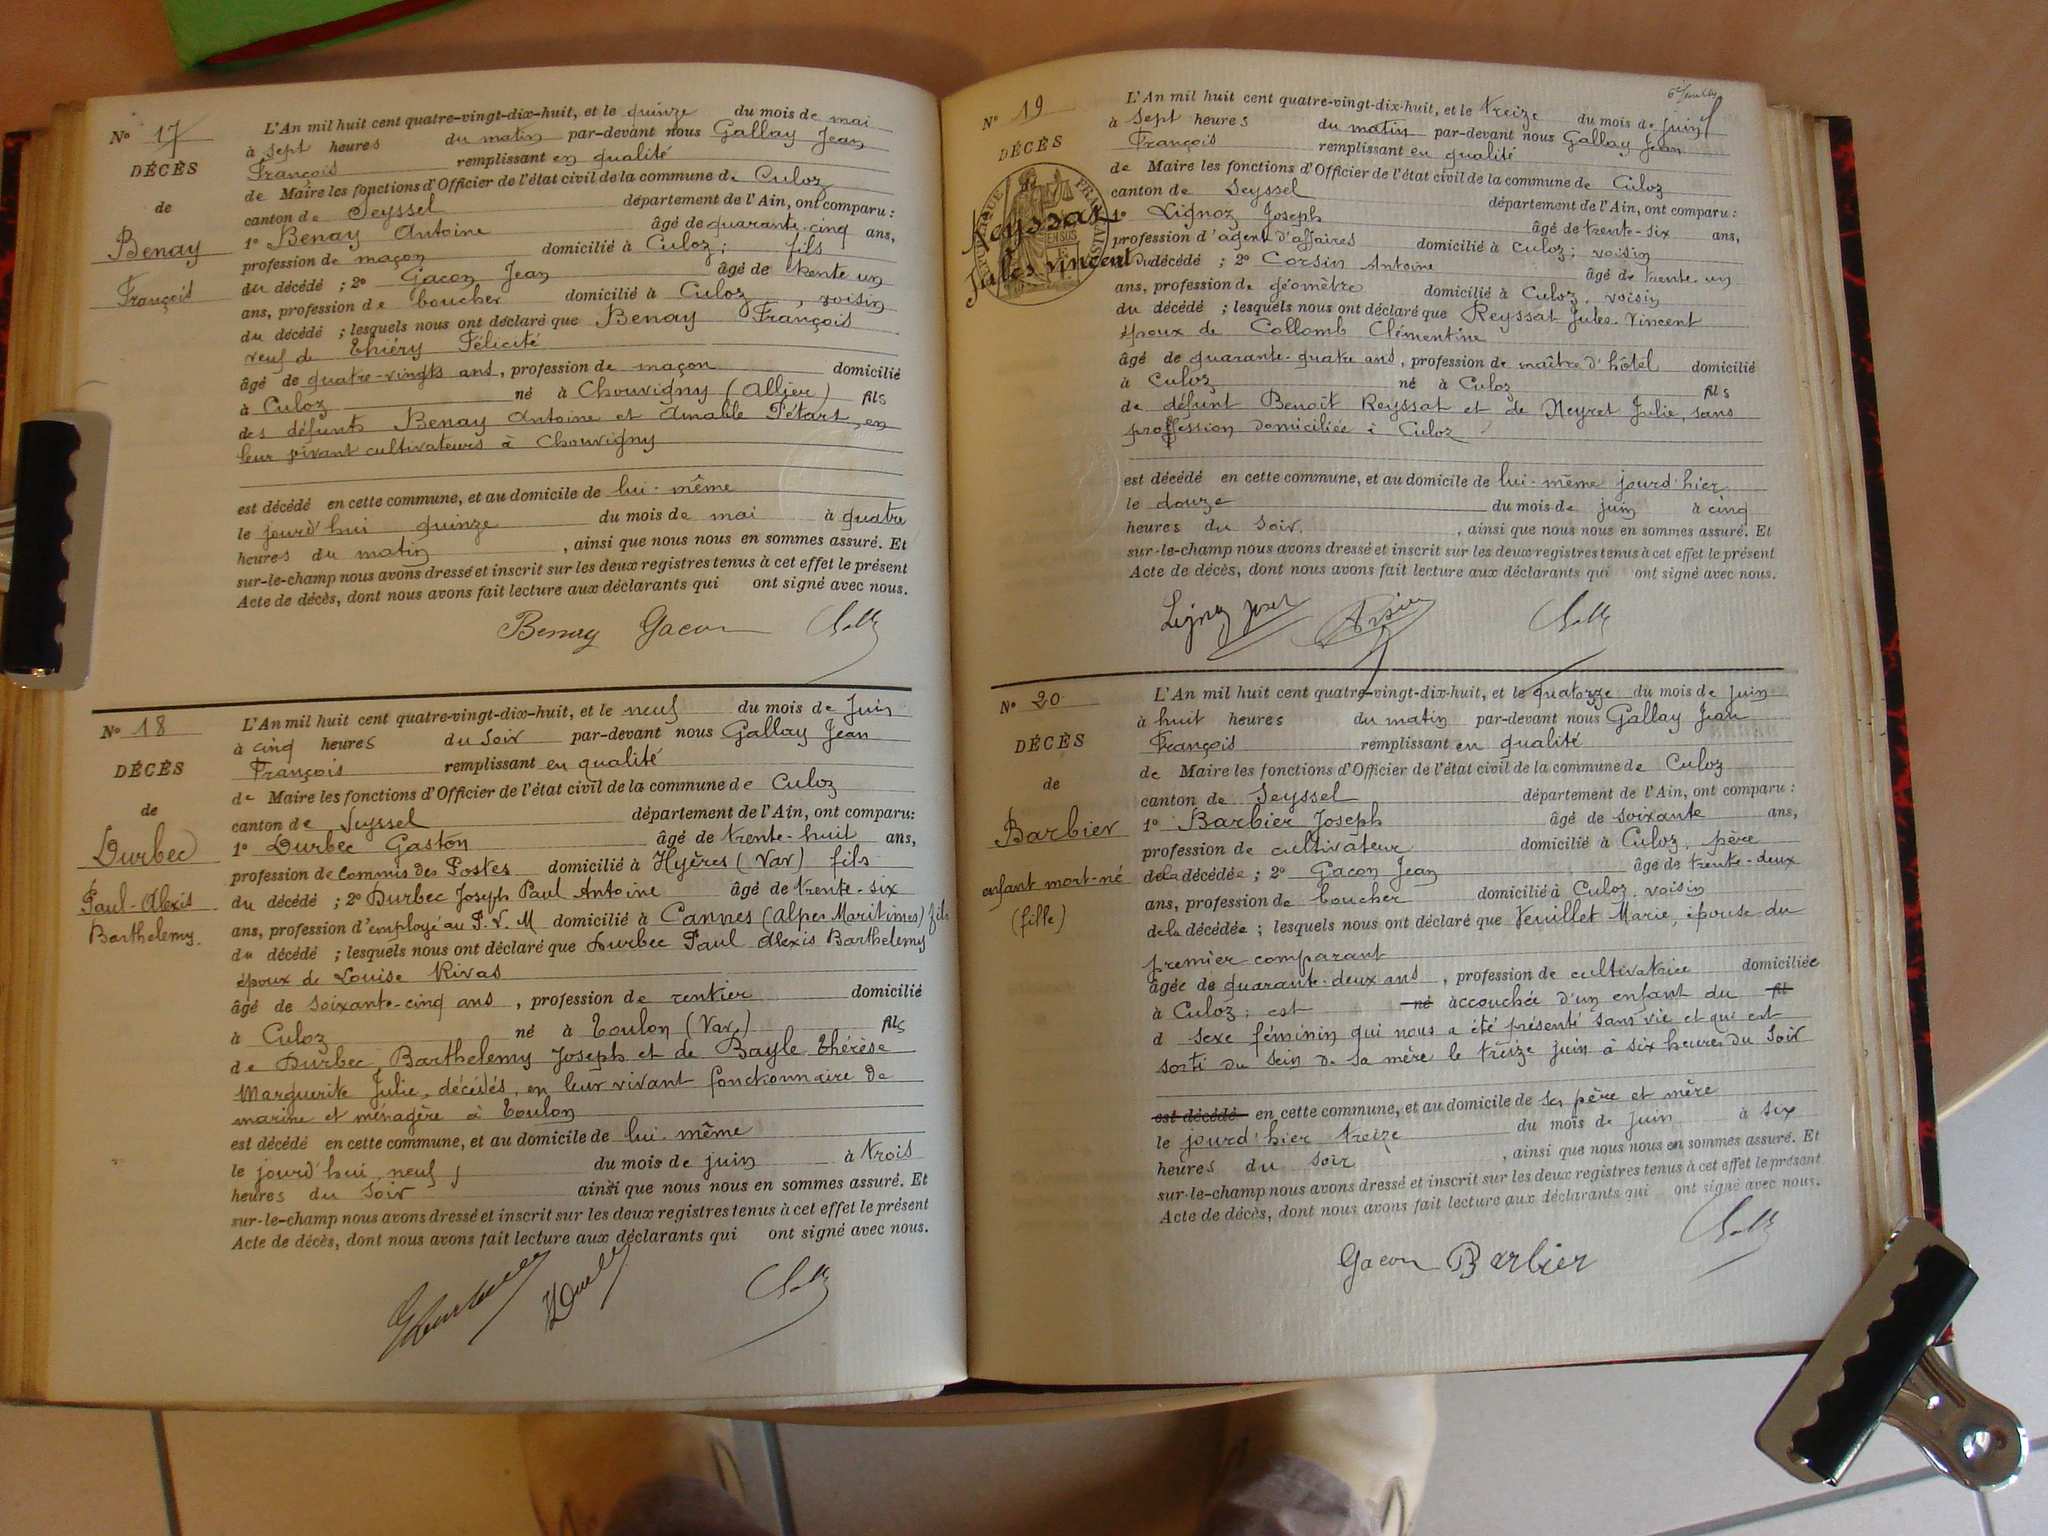 Nº 17
DÉCÈS
de
Benay
François
L'An mil huit cent quatre-vingt-dix-huit, et le quinze du mois de mai
à sept heures du matin par-devant nous Gallay Jean
François remplissant en qualité
de Maire les fonctions d'Officier de l'état civil de la commune de Culoz
canton de Seyssel département de l'Ain, ont comparu :
1º Benay Antoine âgé de quarante-cinq ans,
profession de maçon domicilié à Culoz ; fils
du décédé ; 2º Gacon Jean âgé de trente un
ans, profession de boucher domicilié à Culoz, voisin
du décédé ; lesquels nous ont déclaré que Benay François
veuf de Thiéry Félicité
âgé de quatre-vingts ans, profession de maçon domicilié
à Culoz né à Chouvigny (Allier) fils
des défunts Benay Antoine et Amable Pétart, en
leur vivant cultivateurs à Chouvigny
est décédé en cette commune, et au domicile de lui-même
le jourd'hui quinze du mois de mai à quatre
heures du matin, ainsi que nous nous en sommes assuré. Et
sur-le-champ nous avons dressé et inscrit sur les deux registres tenus à cet effet le présent
Acte de décès, dont nous avons fait lecture aux déclarants qui ont signé avec nous.
Benay Gacon
Nº 18
DÉCÈS
de
Durbec
Paul-Alexis
Barthelemy.
L'An mil huit cent quatre-vingt-dix-huit, et le neuf du mois de Juin
à cinq heures du soir par-devant nous Gallay Jean
François remplissant en qualité
de Maire les fonctions d'Officier de l'état civil de la commune de Culoz
canton de Seyssel département de l'Ain, ont comparu:
1º Durbec Gaston âgé de trente-huit ans,
profession de Commis des Postes domicilié à Hyères (Var) fils
du décédé ; 2º Durbec Joseph Paul Antoine âgé de trente-six
ans, profession d'employé au P. L. M domicilié à Cannes (Alpes Maritimes) fils
du décédé ; lesquels nous ont déclaré que Durbec Paul Alexis Barthelemy
époux de Louise Rivas
âgé de soixante-cinq ans, profession de rentier domicilié
à Culoz né à Toulon (Var) fils
de Durbec, Barthelemy Joseph et de Bayle Thérèse
Marguerite Julie, décédés, en leur vivant fonctionnaire de
marine et ménagère à Toulon
est décédé en cette commune, et au domicile de lui-même
le jourd'hui neuf, du mois de juin à trois
heures du soir ainsi que nous nous en sommes assuré. Et
sur-le-champ nous avons dressé et inscrit sur les deux registres tenus à cet effet le présent
Acte de décès, dont nous avons fait lecture aux déclarants qui ont signé avec nous.
Nº 19
DÉCÈS
Reyssat
Jules Vincent
L'An mil huit cent quatre-vingt-dix-huit, et le treize du mois de juin
à sept heures du matin par-devant nous Gallay Jean
François remplissant en qualité
de Maire les fonctions d'Officier de l'état civil de la commune de Culoz
canton de Seyssel département de l'Ain, ont comparu :
1º Lignoz Joseph âgé de trente-six ans,
profession d'agent d'affaires domicilié à Culoz ; voisin
du décédé ; 2º Corsin Antoine âgé de trente-un
ans, profession de géomètre domicilié à Culoz, voisin
du décédé ; lesquels nous ont déclaré que Reyssat Jules-Vincent
époux de Collomb Clémentine
âgé de quarante-quatre ans, profession de maître d'hôtel domicilié
à Culoz né à Culoz fils
de défunt Benoît Reyssat et de Neyret Julie, sans
profession domiciliée à Culoz
est décédé en cette commune, et au domicile de lui-même jourd'hier
le douze du mois de juin à cinq
heures du soir, ainsi que nous nous en sommes assuré. Et
sur-le-champ nous avons dressé et inscrit sur les deux registres tenus à cet effet le présent
Acte de décès, dont nous avons fait lecture aux déclarants qui ont signé avec nous.
Nº 20
DÉCÈS
de
Barbier
enfant mort-né
(fille)
L'An mil huit cent quatre-vingt-dix-huit, et le quatorze du mois de juin
à huit heures du matin par-devant nous Gallay Jean
François remplissant en qualité
de Maire les fonctions d'Officier de l'état civil de la commune de Culoz
canton de Seyssel département de l'Ain, ont comparu :
1º Barbier Joseph âgé de soixante ans,
profession de cultivateur domicilié à Culoz, père
de la décédée ; 2º Gacon Jean âgé de trente-deux
ans, profession de boucher domicilié à Culoz, voisin
de la décédée ; lesquels nous ont déclaré que Veuillet Marie, épouse du
premier comparant
âgée de quarante-deux ans, profession de cultivatrice domiciliée
à Culoz ; est né accouchée d'un enfant du fil
d sexe féminin qui nous a été présenté sans vie et qui est
sorti du sein de sa mère le treize juin à six heures du soir
est décédé en cette commune, et au domicile de ses père et mère
le jourd'hier treize du mois de juin à six
heures du soir, ainsi que nous nous en sommes assuré. Et
sur-le-champ nous avons dressé et inscrit sur les deux registres tenus à cet effet le présent
Acte de décès, dont nous avons fait lecture aux déclarants qui ont signé avec nous.
Gacon Barbier